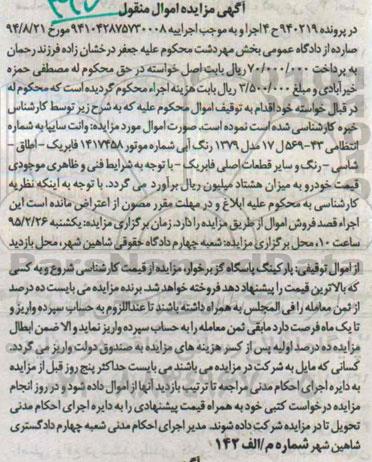 آگهی مزایده اموال منقول
در پرونده ۹۴۰۲۱۹ ج ۴ اجرا و به موجب اجراییه ۹۴۱۰۴۲۸۷۵۷۳۰۰۰۸ مورخ ۹۴/۸/۲۱
صادره از دادگاه عمومی بخش مهردشت محکوم علیه جعفر درخشان زاده فرزند رحمان
به پرداخت ۷۰/۰۰۰/۰۰۰ ریال بابت اصل خواسته در حق محکوم له مصطفی حمزه
خیرآبادی و مبلغ ۳/۵۰۰/۰۰۰ ریال بابت هزینه اجراء محکوم گردیده است که محکوم له
در قبال خواسته خود اقدام به توقیف اموال محکوم علیه که به شرح زیر توسط کارشناس
خبره کارشناسی شده است نموده است. صورت اموال مورد مزایده: وانت سایپا به شماره
انتظامی ۴۳-۵۶۹ل ۱۷ مدل ۱۳۷۹ رنگ آبی شماره موتور ۱۴۱۷۴۵۸ فابریک - اطاق -
شاسی - رنگ و سایر قطعات اصلی فابریک - با توجه به شرایط فنی و ظاهری موجودی
قیمت خودرو به میزان هشتاد میلیون ریال برآورد می گردد. با توجه به اینکه نظریه
کارشناسی به محکوم علیه ابلاغ و در مهلت مقرر مصون از اعتراض مانده است این
اجراء قصد فروش اموال از طریق مزایده را دارد. زمان برگزاری مزایده: یکشنبه ۹۵/۲/۲۶
ساعت ۱۰، محل برگزاری مزایده: شعبه چهارم دادگاه حقوقی شاهین شهر، محل بازدید
از اموال توقیفی: پارکینگ پاسگاه گز برخوار، مزایده از قیمت کارشناسی شروع و به کسی
که بالاترین قیمت را پیشنهاد دهد فروخته خواهد شد. برنده مزایده می بایست ده درصد
از ثمن معامله را فی المجلس به همراه داشته باشند تا عنداللزوم به حساب سپرده واریز و
تا یک ماه فرصت دارد مابقی ثمن معامله را به حساب سپرده واریز نماید و الا ضمن ابطال
مزایده ده درصد اولیه پس از کسر هزینه های مزایده به صندوق دولت واریز می گردد.
کسانی که مایل به شرکت در مزایده می باشند می بایست حداکثر پنج روز قبل از مزایده
به دایره اجرای احکام مدنی مراجعه تا ترتیب بازدید آنها از اموال داده شود و در روز انجام
مزایده درخواست کتبی خود به همراه قیمت پیشنهادی را به دایره اجرای احکام مدنی
تحویل تا در مزایده شرکت داده شوند. مدیر اجرای احکام مدنی شعبه چهارم دادگستری
شاهین شهر شماره م/الف ۱۴۲